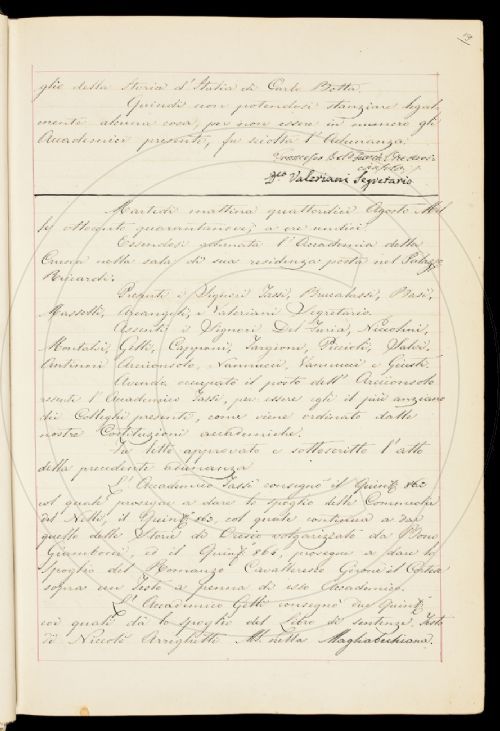 19
glio della Storia d'Italia di Carlo Botta.
Quindi non potendosi stanziare legal-
mente alcuna cosa, per non essere in numero gli
Accademici presenti, fu sciolta l'Adunanza.
Francesco Del Furia
Valeriani Segretario
Martedì mattina quattordici Agosto Mil
le ottocento quarantanove, a ore undici.
Essendosi adunata l'Accademia della
Crusca nella sala di sua residenza posta nel Palazzo
Riccardi.
Presenti i Signori Tassi, Brucalassi, Basi,
Masselli, Arcangeli, e Valeriani Segretario.
Assenti i Signori Del Furia, Niccolini,
Montalvi, Gotti, Capponi, Targioni, Puccioti, Salvi,
Antinori Arciconsolo, Nannucci, Vannucci e Giusti.
Avendo occupato il posto dell'Arciconsolo
assente l'Accademico Tassi, per essere egli il più anziano
dei Colleghi presenti, come viene ordinato dalle
nostre Costituzioni accademiche.
Fu letto approvato e sottoscritto l'atto
della precedente adunanza
L'Accademico Tassi consegnò il Quint.
col quale prosegue a dare lo spoglio delle Commedie
del Nelli, il Quint. col quale continua a dar
quello delle Storie di Orosio volgarizzate da Bono
Giamboni, ed il Quint. 864, prosegue a dare lo
spoglio del Romanzo Cavalleresco Girone il Cortese
sopra un Testo a penna di esso Accademico.
L'Accademico Gotti consegnò due Quint.
coi quali dà lo spoglio del Libro di Sentenze Testo
di Niccolò Arrighetti MS. nella Magliabechiana.